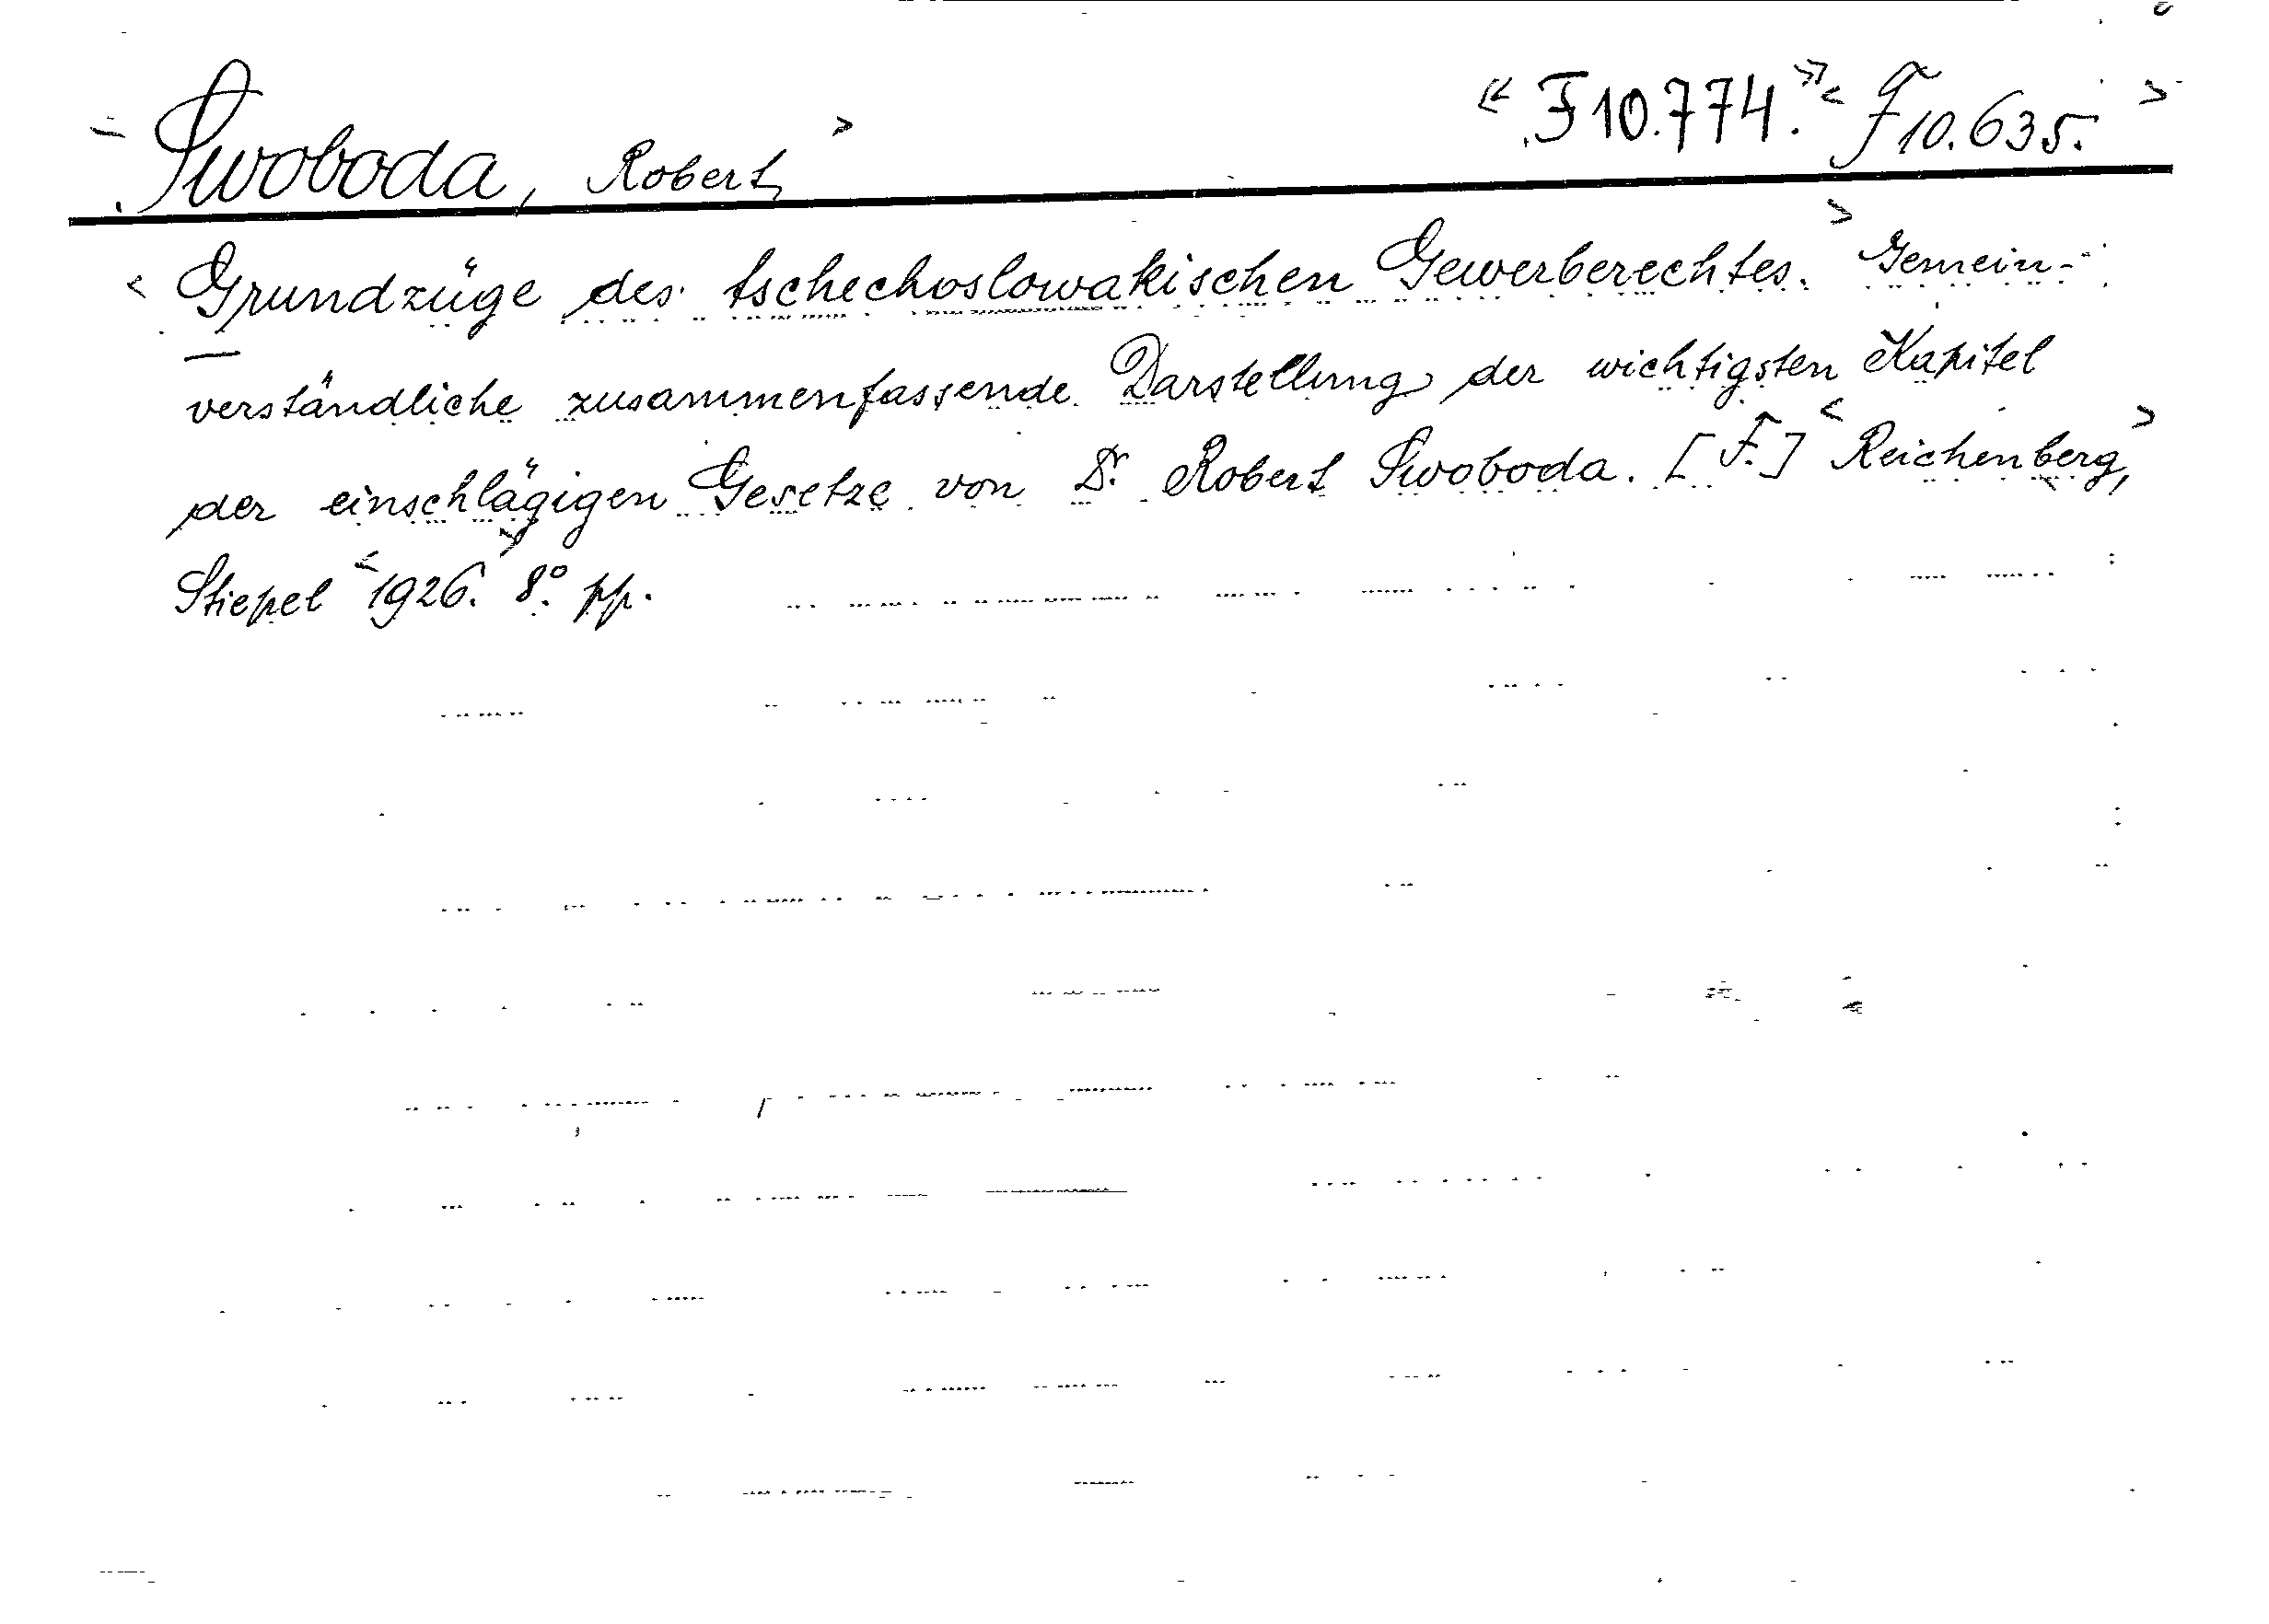 Swoboda, Robert > « F 10.774. » < F 10.635. >
< Grundzüge des tschechoslowakischen Gewerberechtes. > Gemein-
verständliche zusammenfassende Darstellung der wichtigsten Kapitel
der einschlägigen Gesetze von Dr. Robert Swoboda. [F.] < Reichenberg, >
Stiepel < 1926. > 8°. pp.